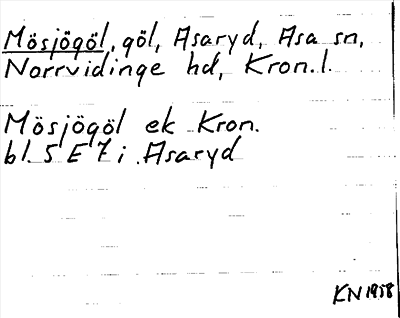 Mösjögöl, göl, Asaryd, Asa sn,
Norrvidinge hd, Kron. l.
Mösjögöl ek Kron.
bl. 5 E 7 i Asaryd
KN 1958